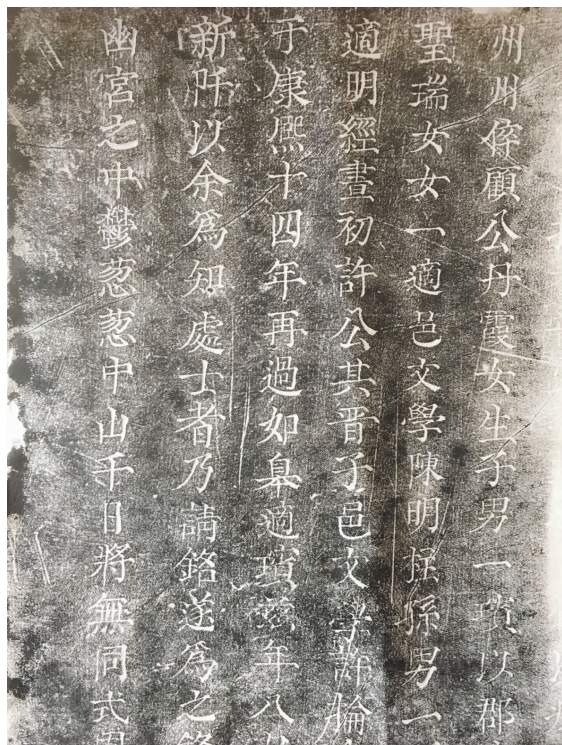 州州倅顧公丹霞女生子男一璸以郡
聖瑞女女一適邑文學陳明極孫男一
適明經晝初許公其晋子邑文學許腀
于康熈十四年再過如皋適璸年八
新阡以余爲知處士者乃請銘遂爲之銘
幽宮之中鬱葱葱中山千日將無同式